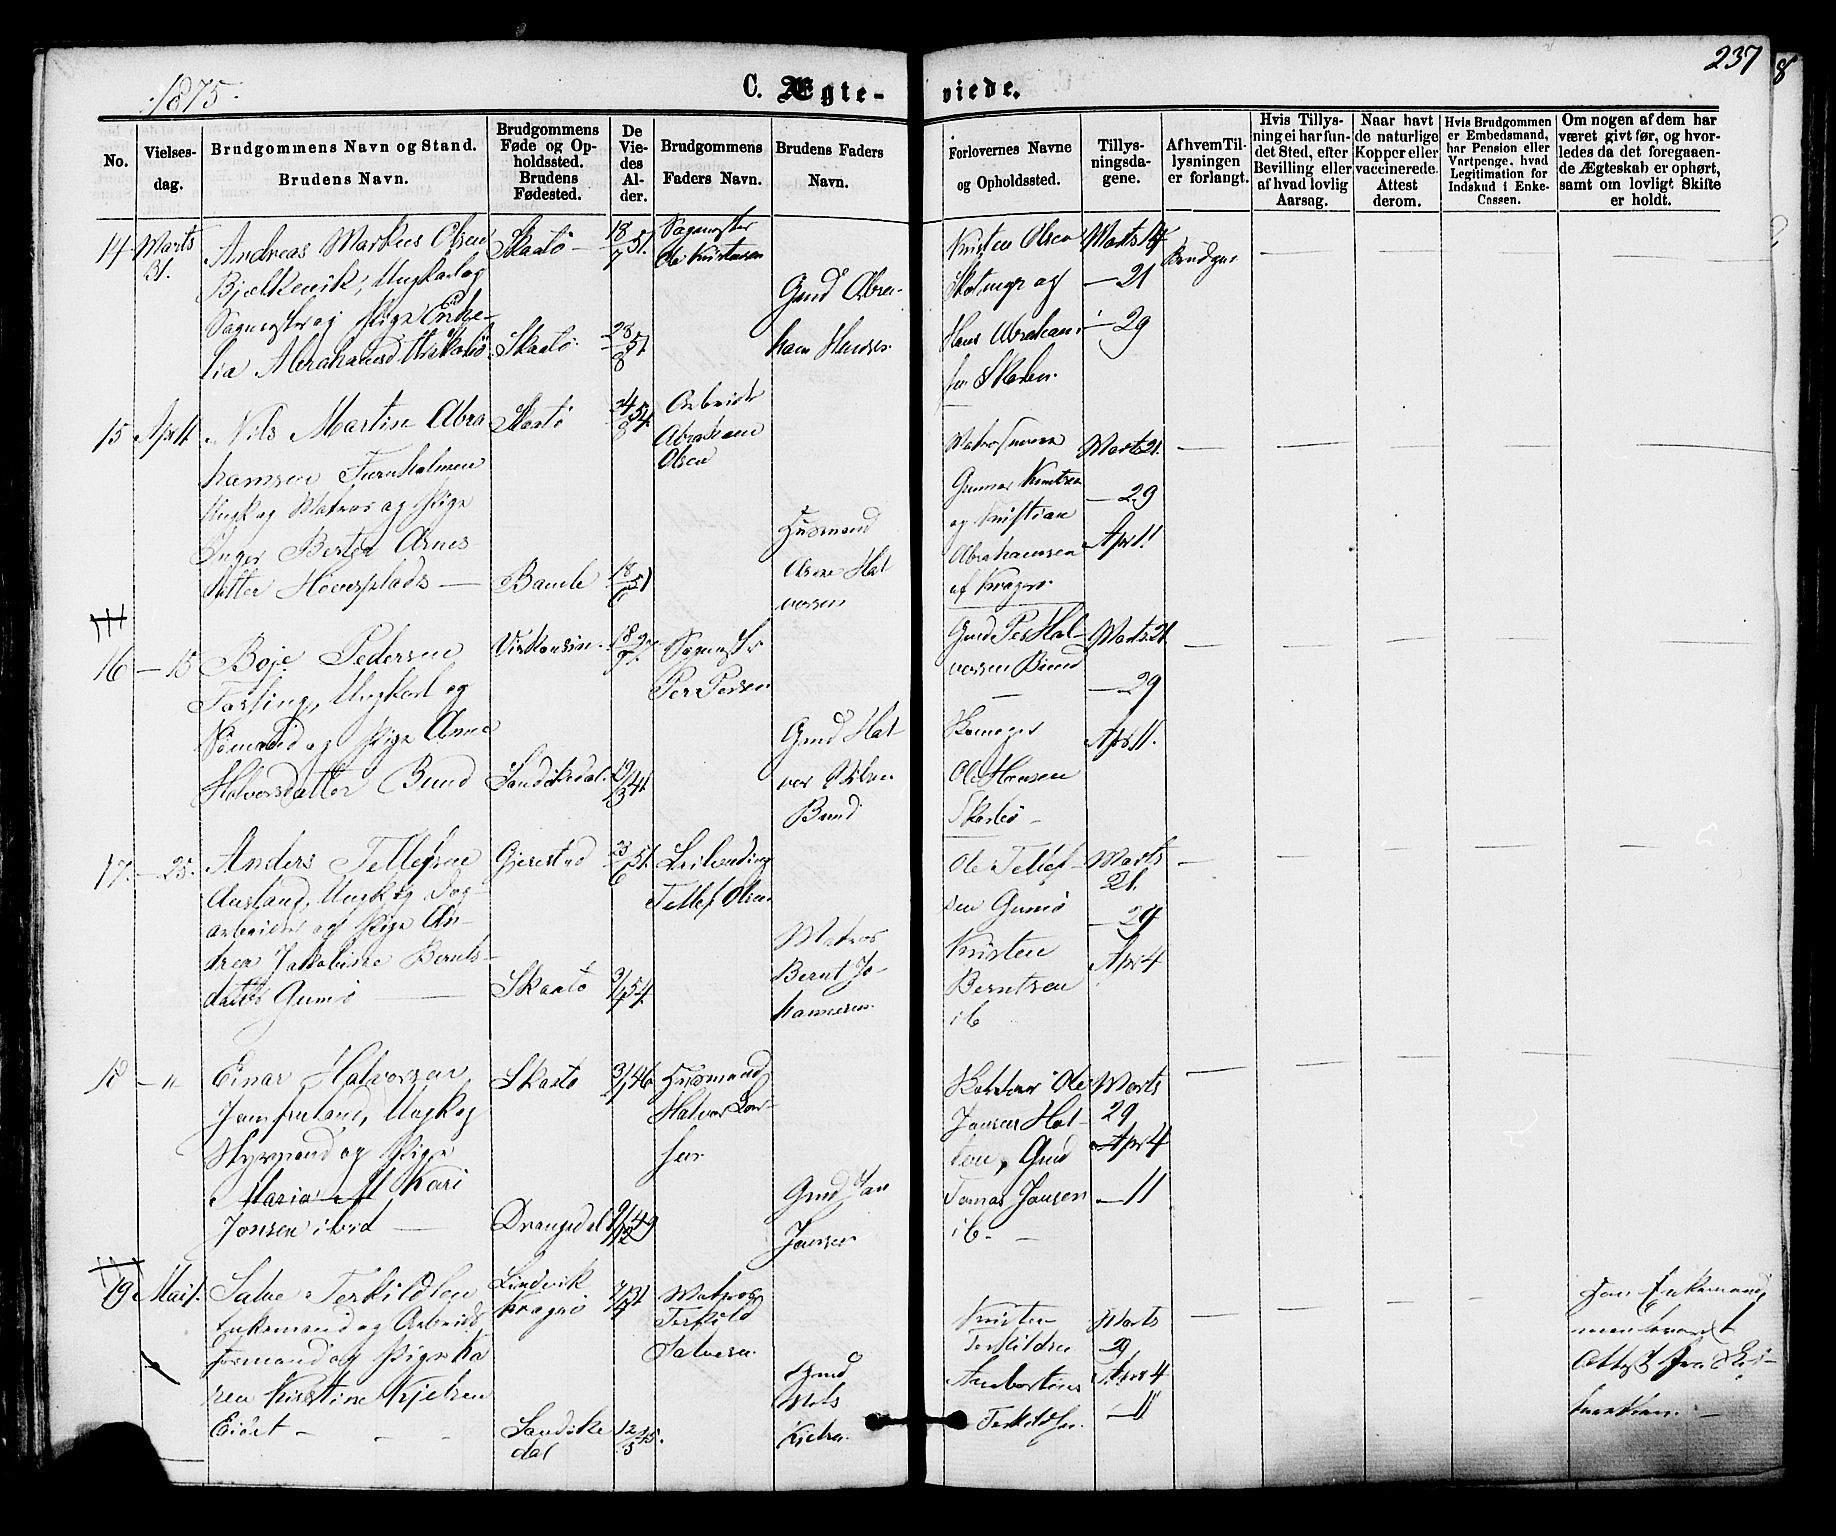 1875.
C. Ægte-
viede.
237
8
No.
Vielses-
dag.
Brudgommens Navn og Stand.
Brudens Navn.
Brudgommens
Føde og Op-
holdssted.
Brudens
Fødested.
De
Vie-
des
Al-
der.
Brudgommens
Faders Navn.
Brudens Faders
Navn.
Forlovernes Navne
og Opholdssted.
Tillys-
ningsda-
gene.
Af hvem Til-
lysningen
er forlangt.
Hvis Tillys-
ning ei har fun-
det Sted, efter
Bevilling eller
af hvad lovlig
Aarsag.
Naar havt
de naturlige
Kopper eller
vaccinerede.
Attest
derom.
Hvis Brudgommen
er Embedsmand,
har Pension eller
Vartpenge, hvad
Legitimation for
Indskud i Enke-
Cassen.
Om nogen af dem har
været givt før, og hvor-
ledes da det foregaaen-
de Ægteskab er ophørt,
samt om lovligt Skifte
er holdt.
14
Marts
31.
Andreas Markus Olsen
Bjelkevik, Ungkarl og
Sagmester og Pige
lia Abrahamsd
Skaatø
18/7 51.
Skaatø
28/8 51
Sagmester
Ole Kristensen
Gmd Abra-
ham Hansen
Kristen Olsen
og
Hans Abraham-
sen
Marts 14
— 21
— 29
Brudgom
15
April 11
Nils Martin Abra
hamsen Furuholmen
Ungk og Matros og Pige
Inger Berte Arnes-
datter Høversplads —
Skaatø
24/8 54.
Bamle
18/6 51
Arbeids
Abraham
Olsen
Husmand
Arne Hal
vorsen
Gunnar Knutsen
og Kristian
Abrahamsen
af Kragerø
Marts 21.
— 29
Apr 11
16
— 15
Boje Pedersen
Fossing, Ungkarl og
Sømand og Pige Anne
Halvorsdatter Bund
Viskonsin
Sandøkedal
19/3 41.
Sagmester
Per Persen
Gmd Hal
vor
Bund
Gmd Per Hal-
vorsen Bund
—
Ole Hansen
Marts 21
— 29
Apr 11.
17.
— 25.
Anders Tellefsen
Aasland, Ungk og Dag
arbeider og Pige An-
drea Jakobine Bernts-
datter Gumø —
Gjerestad
23/6 51.
Skaatø
54.
Leilending
Tellef Olsen
Matros
Bernt Jo-
hannesen
Ole Tellef-
sen Gumø
Kristen
Berntsen
ib
Marts
21.
— 29
Apr 4
18
— "
Einar Halvorsen
Jomfruland, Ungk og
Styrmand og Pige
Maria M Kari
Jonsen ibid —
Skaatø
46
Drangedal
49
Husmand
Halvor Lar-
sen
Gmd Jan
Jansen
Ole
Jansen
Gmd
Tomas Jansen
ib. —
Marts
29
Apr 4
— 11
19
Mai 1.
Salve Terkildsen
Enkemand og Arbeids
formand og Pige Ka
ren Kirstine Kjelsen
Eidet —
Lindvik
Kragerø
31
Sandøke
dal
12/5 45.
Matros
Terkild
Salvesen
Gmd
Mats
Kjelsen
Kristen
Terkildsen
Terkildsen
Marts
29
Apr 4
— 11
Han Enkemand,
Attest fra